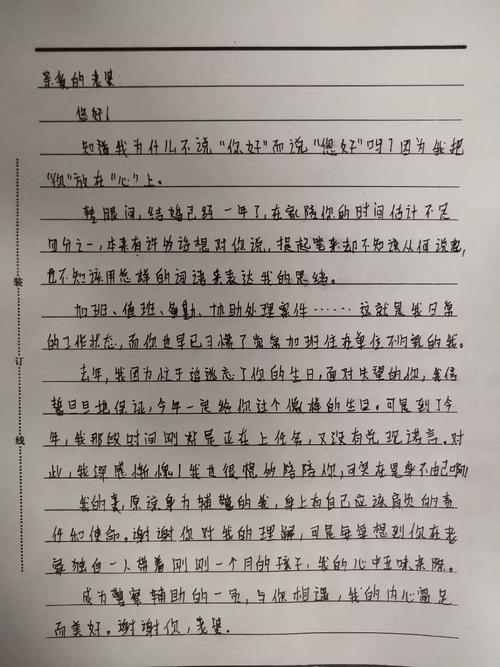 亲爱的老婆:
您好!
知道我为什么不说“你好”而说“您好”吗?因为我把
“你”放在“心”上。
转眼间,结婚已经一年了,在家陪你的时间估计不足
四分之一,本来有许多话想对你说,提起笔来却不知该从何说起,
也不知该用怎样的词语来表达我的思绪。
加班、值班、备勤、协助处理案件……这就是我日常
的工作状态,而你也早已习惯了常常加班住在单位不归家的我。
去年,我因为忙于追逃忘了你的生日,面对失望的你,我信
誓旦旦地保证,今年一定给你过个像样的生日。可是到了今
年,我那段时间刚好是正在上任务,又没有兑现诺言。对
此,我深感惭愧!我也很想多陪陪你,可实在是身不由已啊!
我的妻,原谅身为辅警的我,身上有自己应该肩负的责
任和使命。谢谢你对我的理解,可是每每想到你在老
家独自一人带着刚刚一个月的孩子,我的心中五味杂陈。
成为警察辅助的一员,与你相遇,我的内心富足
而美好。谢谢你,老婆。
装
订
线